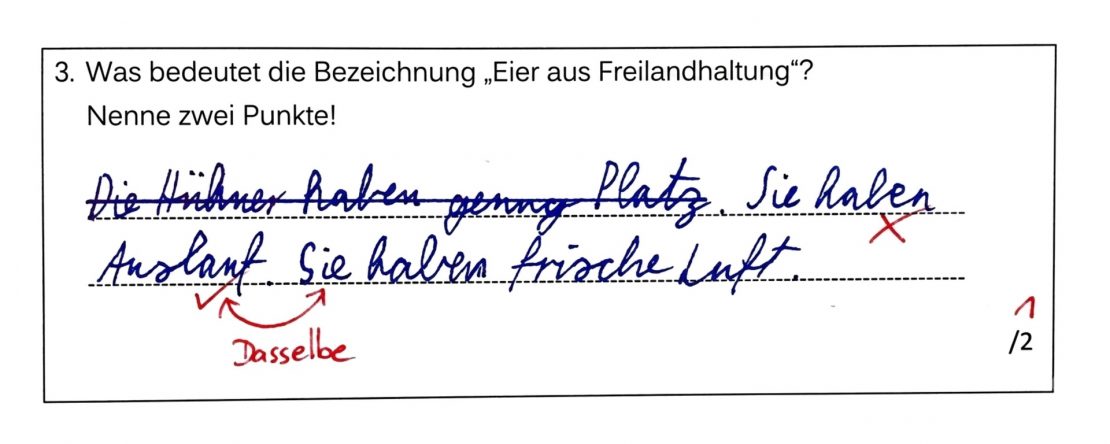 3. Was bedeutet die Bezeichnung „Eier aus Freilandhaltung“?
Nenne zwei Punkte!
Die Hühner haben genug Platz. Sie haben
Auslauf. Sie haben frische Luft.
Dasselbe
1
/2